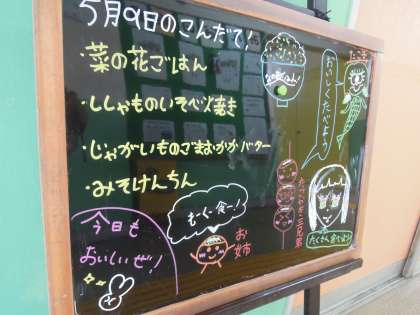 5月9日のこんだて!
・菜の花ごはん
・ししゃものいそべ焼き
・じゃがいものごまおかかバター
・みそけんちん
今日も
おいしいぜ!
むーぐー食ー!
お姉
なのはなごはん!
おいしくたべよう
たくさん食べよう